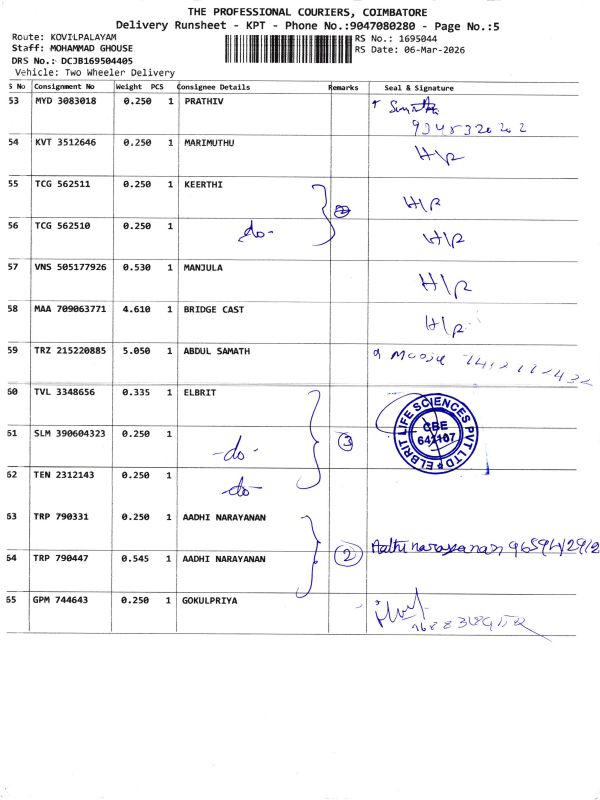 THE PROFESSIONAL COURIERS, COIMBATORE
Delivery Runsheet - KPT - Phone No.:9047080280 - Page No.:5
Route: KOVILPALAYAM
RS No.: 1695044
Staff: MOHAMMAD GHOUSE
RS Date: 06-Mar-2026
DRS No.: DCJB169504405
Vehicle: Two Wheeler Delivery
S No Consignment No Weight PCS Consignee Details Remarks Seal & Signature
53 MYD 3083018 0.250 1 PRATHIV
54 KVT 3512646 0.250 1 MARIMUTHU H/R
55 TCG 562511 0.250 1 KEERTHI H/R
56 TCG 562510 0.250 1 -do- H/R
57 VNS 505177926 0.530 1 MANJULA H/R
58 MAA 709063771 4.610 1 BRIDGE CAST H/R
59 TRZ 215220885 5.050 1 ABDUL SAMATH
60 TVL 3348656 0.335 1 ELBRIT
ELBRIT LIFE SCIENCES PVT LTD
CBE
641107
61 SLM 390604323 0.250 1 -do- 3
62 TEN 2312143 0.250 1 -do-
63 TRP 790331 0.250 1 AADHI NARAYANAN
Aadhi narayanan
64 TRP 790447 0.545 1 AADHI NARAYANAN 2
65 GPM 744643 0.250 1 GOKULPRIYA